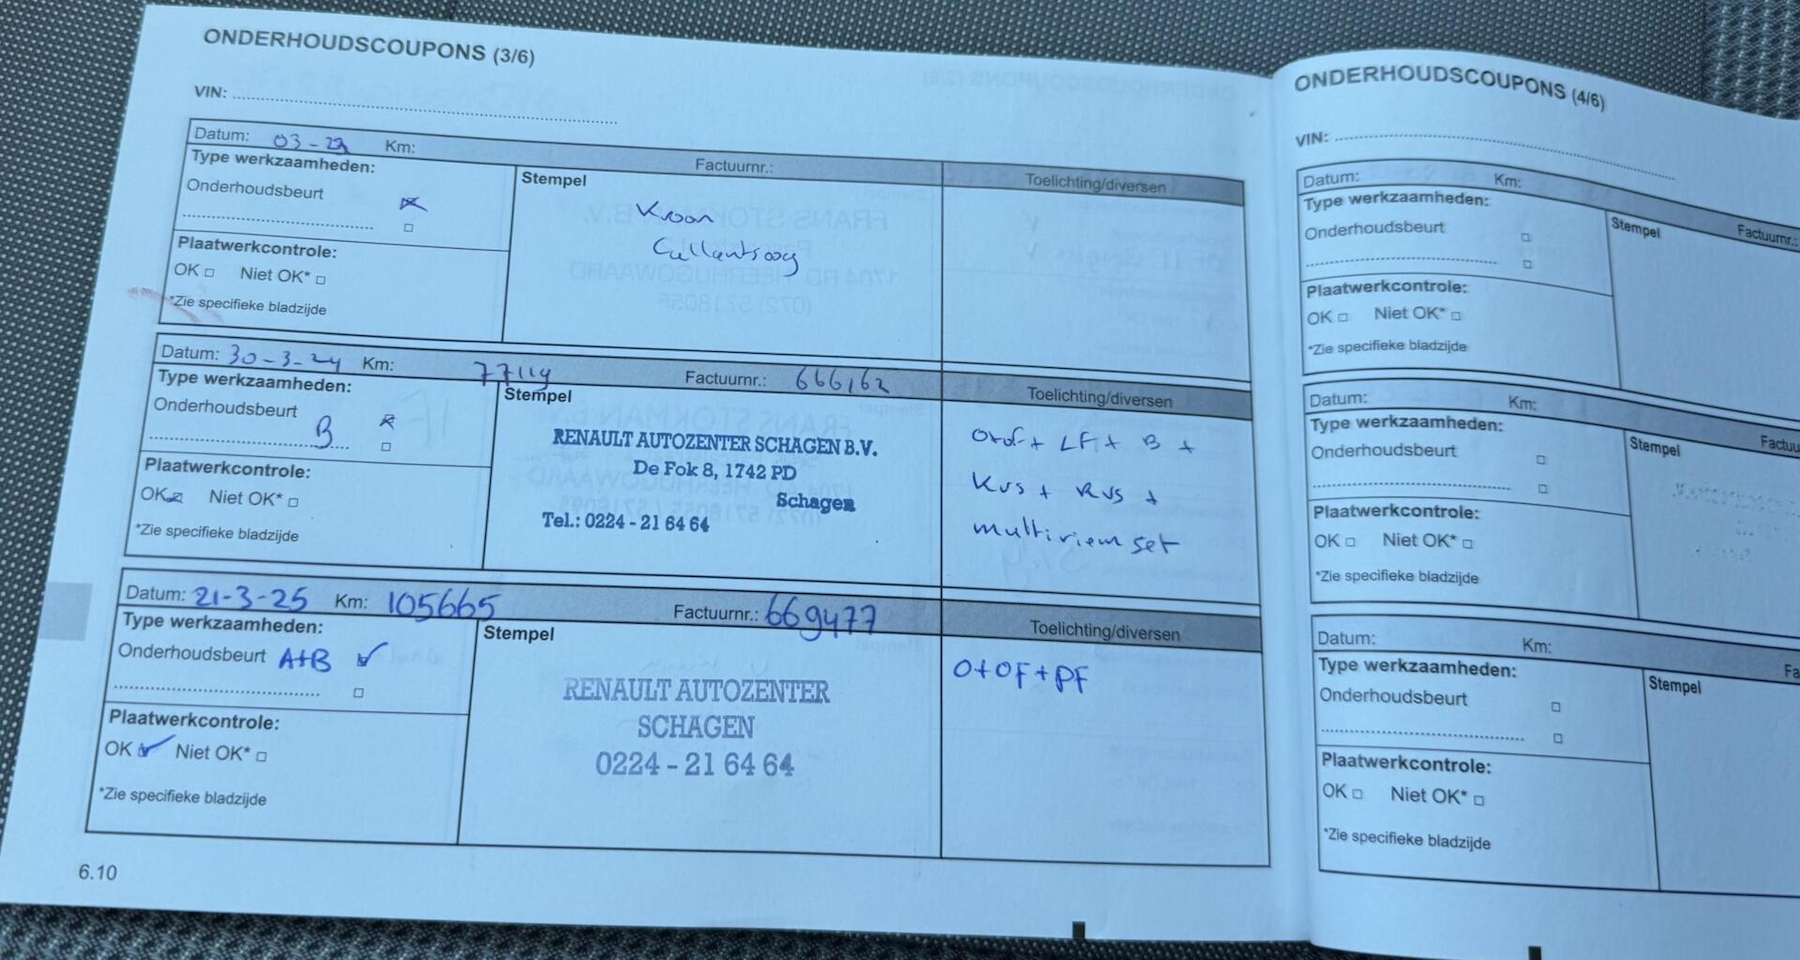 ONDERHOUDSCOUPONS (3/6)
VIN:
Datum: 03-23 Km: Factuurnr.: Toelichting/diversen
Type werkzaamheden:
Stempel
Onderhoudsbeurt
Kroon
Callantsoog
Plaatwerkcontrole:
OK Niet OK*
*Zie specifieke bladzijde
Datum: 30-3-24 Km: 77119 Factuurnr.: 666162 Toelichting/diversen
Type werkzaamheden:
Stempel
Onderhoudsbeurt
B
RENAULT AUTOZENTER SCHAGEN B.V.
De Fok 8, 1742 PD
Schagen
Tel.: 0224 - 21 64 64
O+of+ LF+ B +
KVS + RVS +
multiriem set
Plaatwerkcontrole:
OK Niet OK*
*Zie specifieke bladzijde
Datum: 21-3-25 Km: 105665 Factuurnr.: 669477 Toelichting/diversen
Type werkzaamheden:
Stempel
Onderhoudsbeurt A+B
RENAULT AUTOZENTER
SCHAGEN
0224 - 21 64 64
O+OF+PF
Plaatwerkcontrole:
OK Niet OK*
*Zie specifieke bladzijde
6.10
ONDERHOUDSCOUPONS (4/6)
VIN:
Datum: Km: Factuurnr.:
Type werkzaamheden:
Stempel
Onderhoudsbeurt
Plaatwerkcontrole:
OK Niet OK*
*Zie specifieke bladzijde
Datum: Km: Factuu
Type werkzaamheden:
Stempel
Onderhoudsbeurt
Plaatwerkcontrole:
OK Niet OK*
*Zie specifieke bladzijde
Datum: Km: Fa
Type werkzaamheden:
Stempel
Onderhoudsbeurt
Plaatwerkcontrole:
OK Niet OK*
*Zie specifieke bladzijde